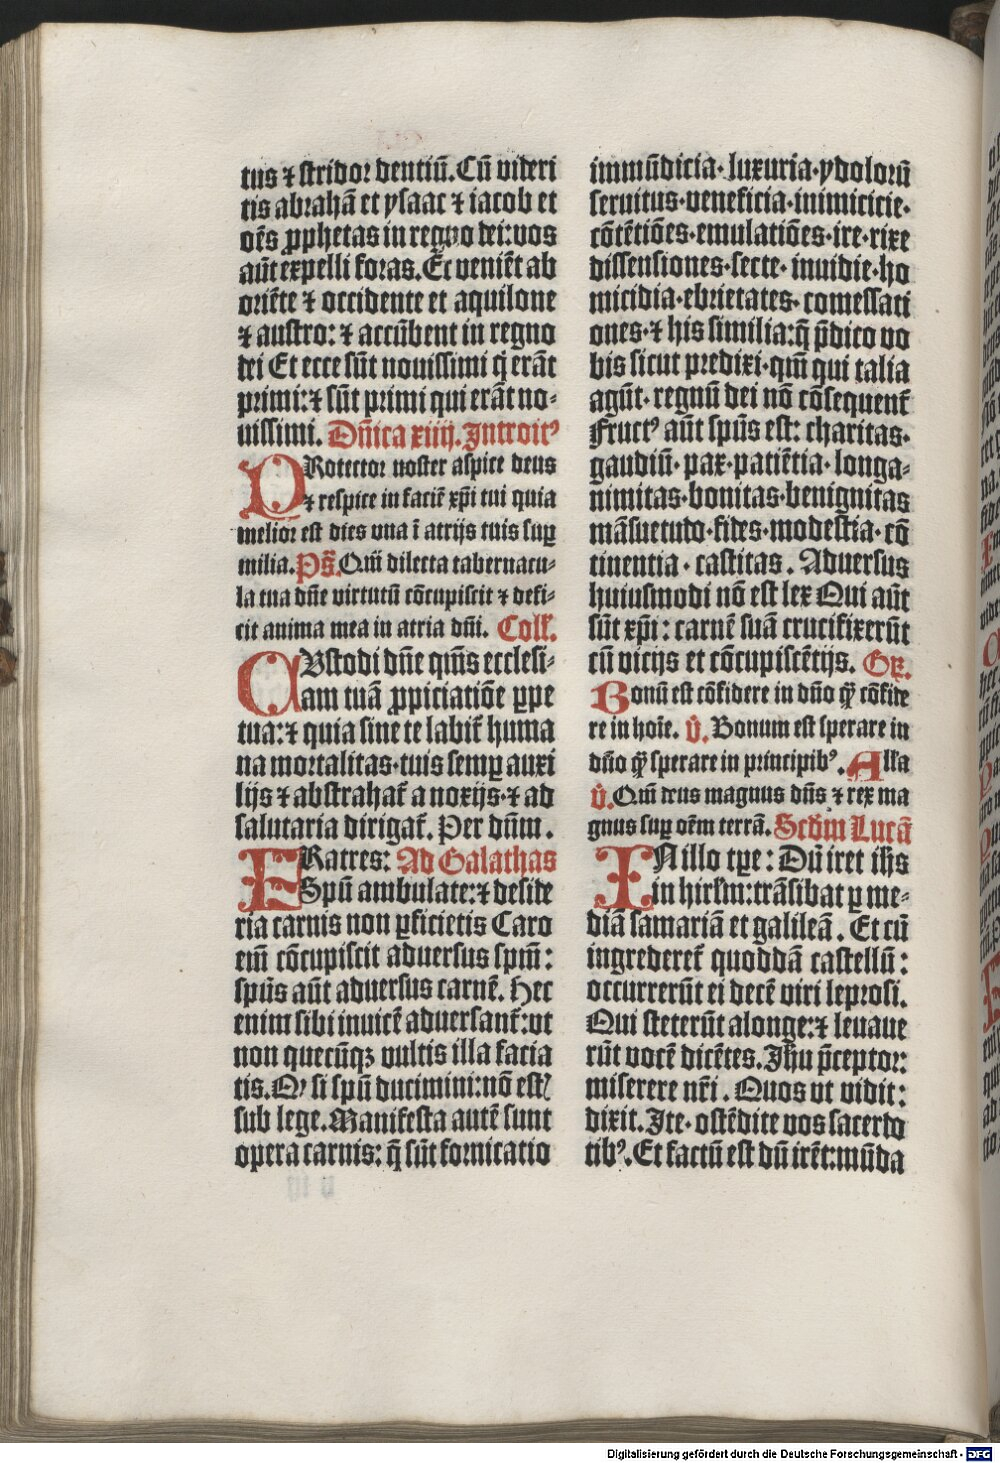 tus ⁊ stridor dentiũ. Cũ videri
tis abrahã et ysaac ⁊ iacob et
oẽs ꝓphetas in regno dei: vos
aũt expelli foras. Et veniẽt ab
oriẽte ⁊ occidente et aquilone
⁊ austro: ⁊ accũbent in regno
dei Et ecce sũt nouissimi q̇ erãt
primi: ⁊ sũt primi qui erãt no⸗
uissimi. Dñica xiiij. Introitꝰ
PRotector noster aspice deus
⁊ respice in faciẽ xp̃i tui quia
melior est dies vna ĩ atrijs tuis suꝑ
milia. Ps̃. Qm̃ dilecta tabernacu⸗
la tua dñe virtutũ cõcupiscit ⁊ defi⸗
cit anima mea in atria dñi. Coll̃.
CVstodi dñe qm̃s ecclesi⸗
am tuã ꝓpiciatiõe ꝑpe
tua: ⁊ quia sine te labit̃ huma
na mortalitas· tuis semꝑ auxi
lijs ⁊ abstrahat̃ a noxijs· ⁊ ad
salutaria dirigat̃. Per dñm.
FRatres: Ad Galathas
Spũ ambulate: ⁊ deside
ria carnis non ꝑficietis Caro
em̃ cõcupiscit aduersus spm̃:
spũs aũt aduersus carnẽ. Hec
enim sibi inuicẽ aduersant̃: vt
non quecũqꝫ vultis illa facia
tis. Qꝛ si spũ ducimini: nõ est̃
sub lege. Manifesta autẽ sunt
opera carnis: q̃ sũt fornicatio
immũdicia· luxuria· ydolorũ
seruitus· veneficia· inimicicie·
cõtẽtiões· emulatiões· ire· rixe
dissensiones· secte· inuidie· ho
micidia· ebrietates· comessati
ones· ⁊ his similia: q̃ p̃dico vo
bis sicut predixi· qm̃ qui talia
agũt· regnũ dei nõ cõsequent̃
Fructꝰ aũt spũs est: charitas·
gaudiũ· pax· patiẽtia· longa⸗
nimitas· bonitas· benignitas
mãsuetudo· fides· modestia· cõ
tinentia· castitas. Aduersus
huiusmodi nõ est lex Qui aũt
sũt xp̃i: carnẽ suã crucifixerũt
cũ vicijs et cõcupiscẽtijs. Gꝝ.
Bonũ est cõfidere in dño q̃ cõfide
re in hoĩe. v̊. Bonum est sperare in
dño q̃ sperare in principibꝰ. Alla
v̊. Qm̃ deus magnus dñs ⁊ rex ma
gnus suꝑ oẽm terrã. Scdm̃ Lucã
IN illo tp̃e: Dũ iret ihs
in hirlm̃: trãsibat ꝑ me⸗
diã samariã et galileã. Et cũ
ingrederet̃ quoddã castellũ:
occurrerũt ei decẽ viri leprosi.
Qui steterũt alonge: ⁊ leuaue
rũt vocẽ dicẽtes. Jhũ p̃ceptor:
miserere nr̃i. Quos vt vidit:
dixit. Ite· ostẽdite vos sacerdo
tibꝰ. Et factũ est dũ irẽt: mũda
Digitalisierung gefördert durch die Deutsche Forschungsgemeinschaft - DFG